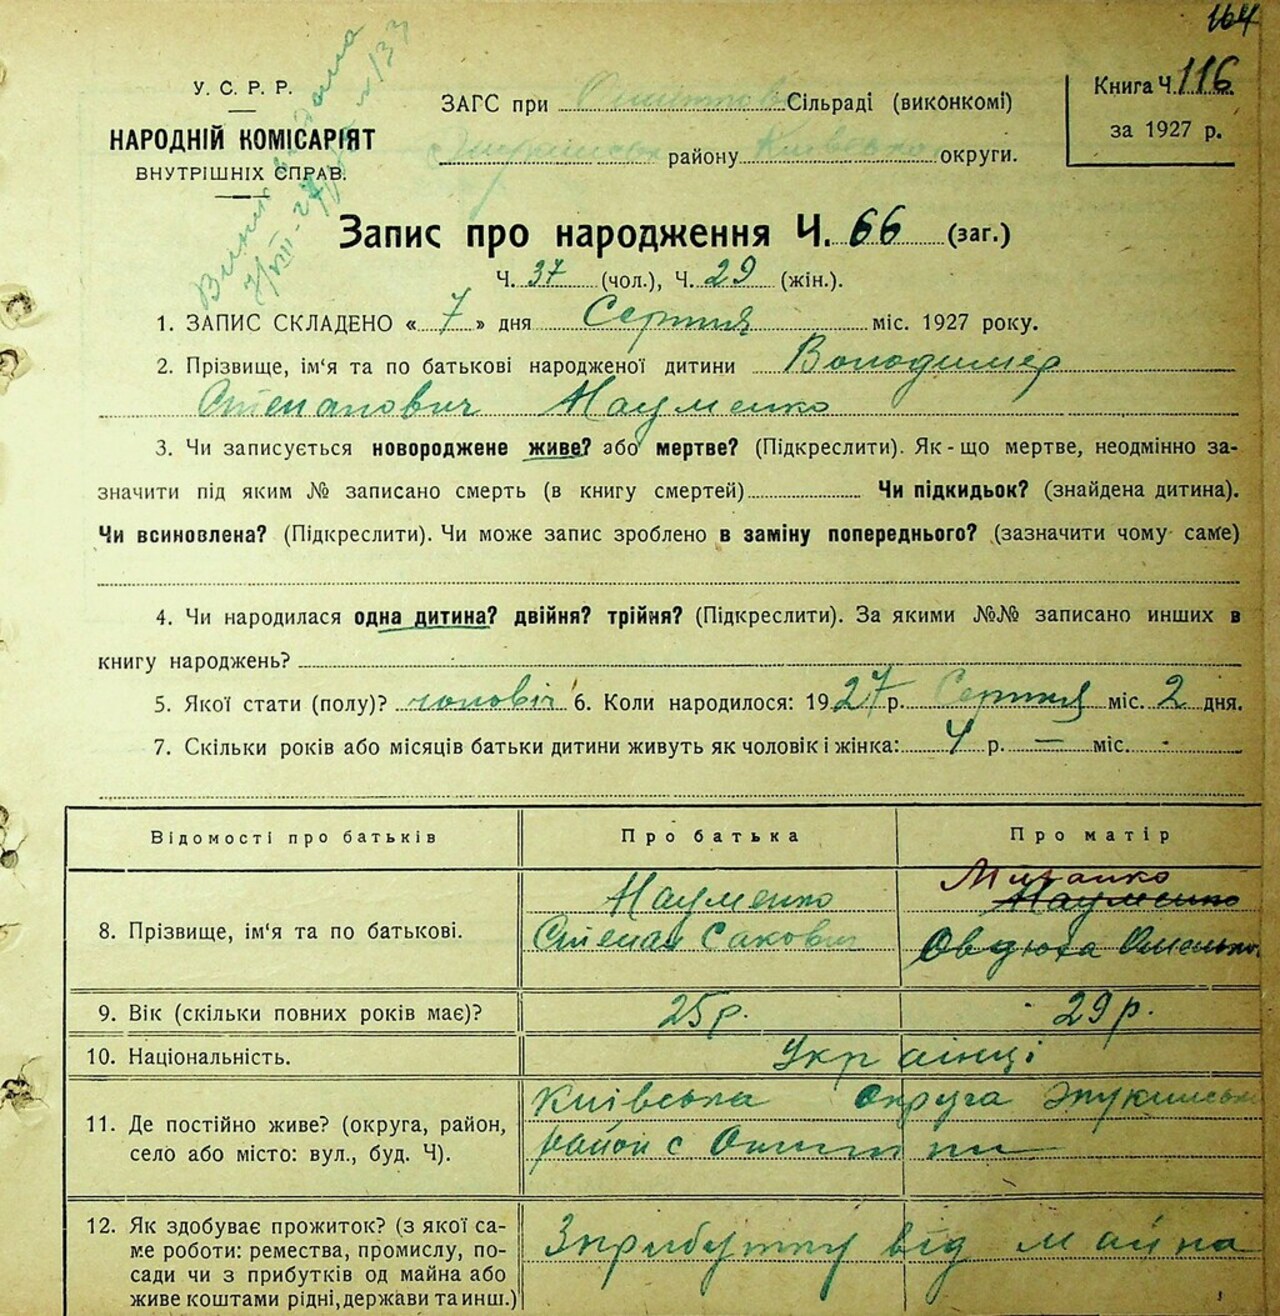 164
У. С. Р. Р.
НАРОДНІЙ КОМІСАРІЯТ
ВНУТРІШНІХ СПРАВ.
ЗАГС при Сільраді (виконкомі)
району Київсько округи.
Книга Ч. 116
за 1927 р.
Запис про народження Ч. 66 (заг.)
Ч. 37 (чол.), Ч. 29 (жін.).
1. ЗАПИС СКЛАДЕНО « 7 » дня Серпня міс. 1927 року.
2. Прізвище, ім‘я та по батькові народженої дитини Володимер
Степанович Науменко
3. Чи записується новороджене живе? або мертве? (Підкреслити). Як-що мертве, неодмінно за-
значити під яким № записано смерть (в книгу смертей) Чи підкидьок? (знайдена дитина).
Чи всиновлена? (Підкреслити). Чи може запис зроблено в заміну попереднього? (зазначити чому саме)
4. Чи народилася одна дитина? двійня? трійня? (Підкреслити). За якими №№ записано инших в
книгу народжень?
5. Якої стати (полу)? чоловіч 6. Коли народилося: 1927 р. Серпня міс. 2 дня.
7. Скільки років або місяців батьки дитини живуть як чоловік і жінка: 4 р. — міс.
Відомості про батьків Про батька Про матір
8. Прізвище, ім‘я та по батькові.
Науменко
Степан Сакович
Науменко
Овдюха
9. Вік (скільки повних років має)? 25 р. 29 р.
10. Національність. Українці
11. Де постійно живе? (округа, район,
село або місто: вул., буд. Ч).
Київська округа
район с
12. Як здобуває прожиток? (з якої са-
ме роботи: ремества, промислу, по-
сади чи з прибутків од майна або
живе коштами рідні, держави та инш.)
Зприбутку від майна